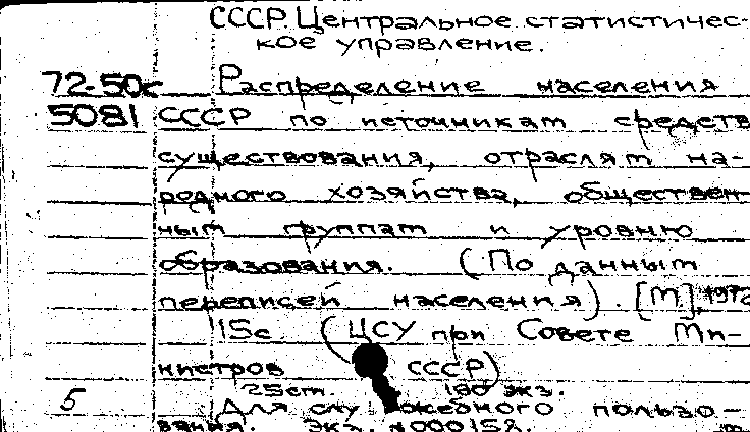 СССР. Центральное статистичес-
кое управление.
72-50с Распределение населения
5081 СССР по источникам средств
существования, отраслям на-
родного хозяйства, обществен-
ным группам и уровню
образования. (По данным
переписей населения). [М], 1972
15с (ЦСУ при Совете Ми-
нистров СССР)
25см. 180 экз.
5 Для служебного пользо-
вания. Экз. №000158.